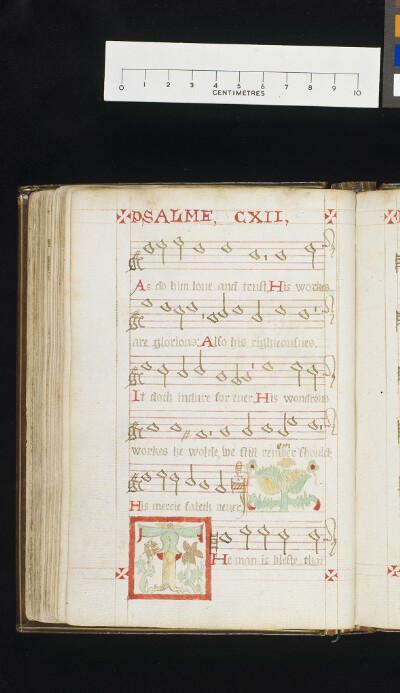 0 1 2 3 4 5 6 7 8 9 10
CENTIMETRES
PSALME, CXII,
As do him loue and trust, His workes
are glorious: Also his righteousnes,
It doth indure for euer, His wondrous
workes he wolde, we still remember should
His mercie faileth neuer,
The man is bleste that